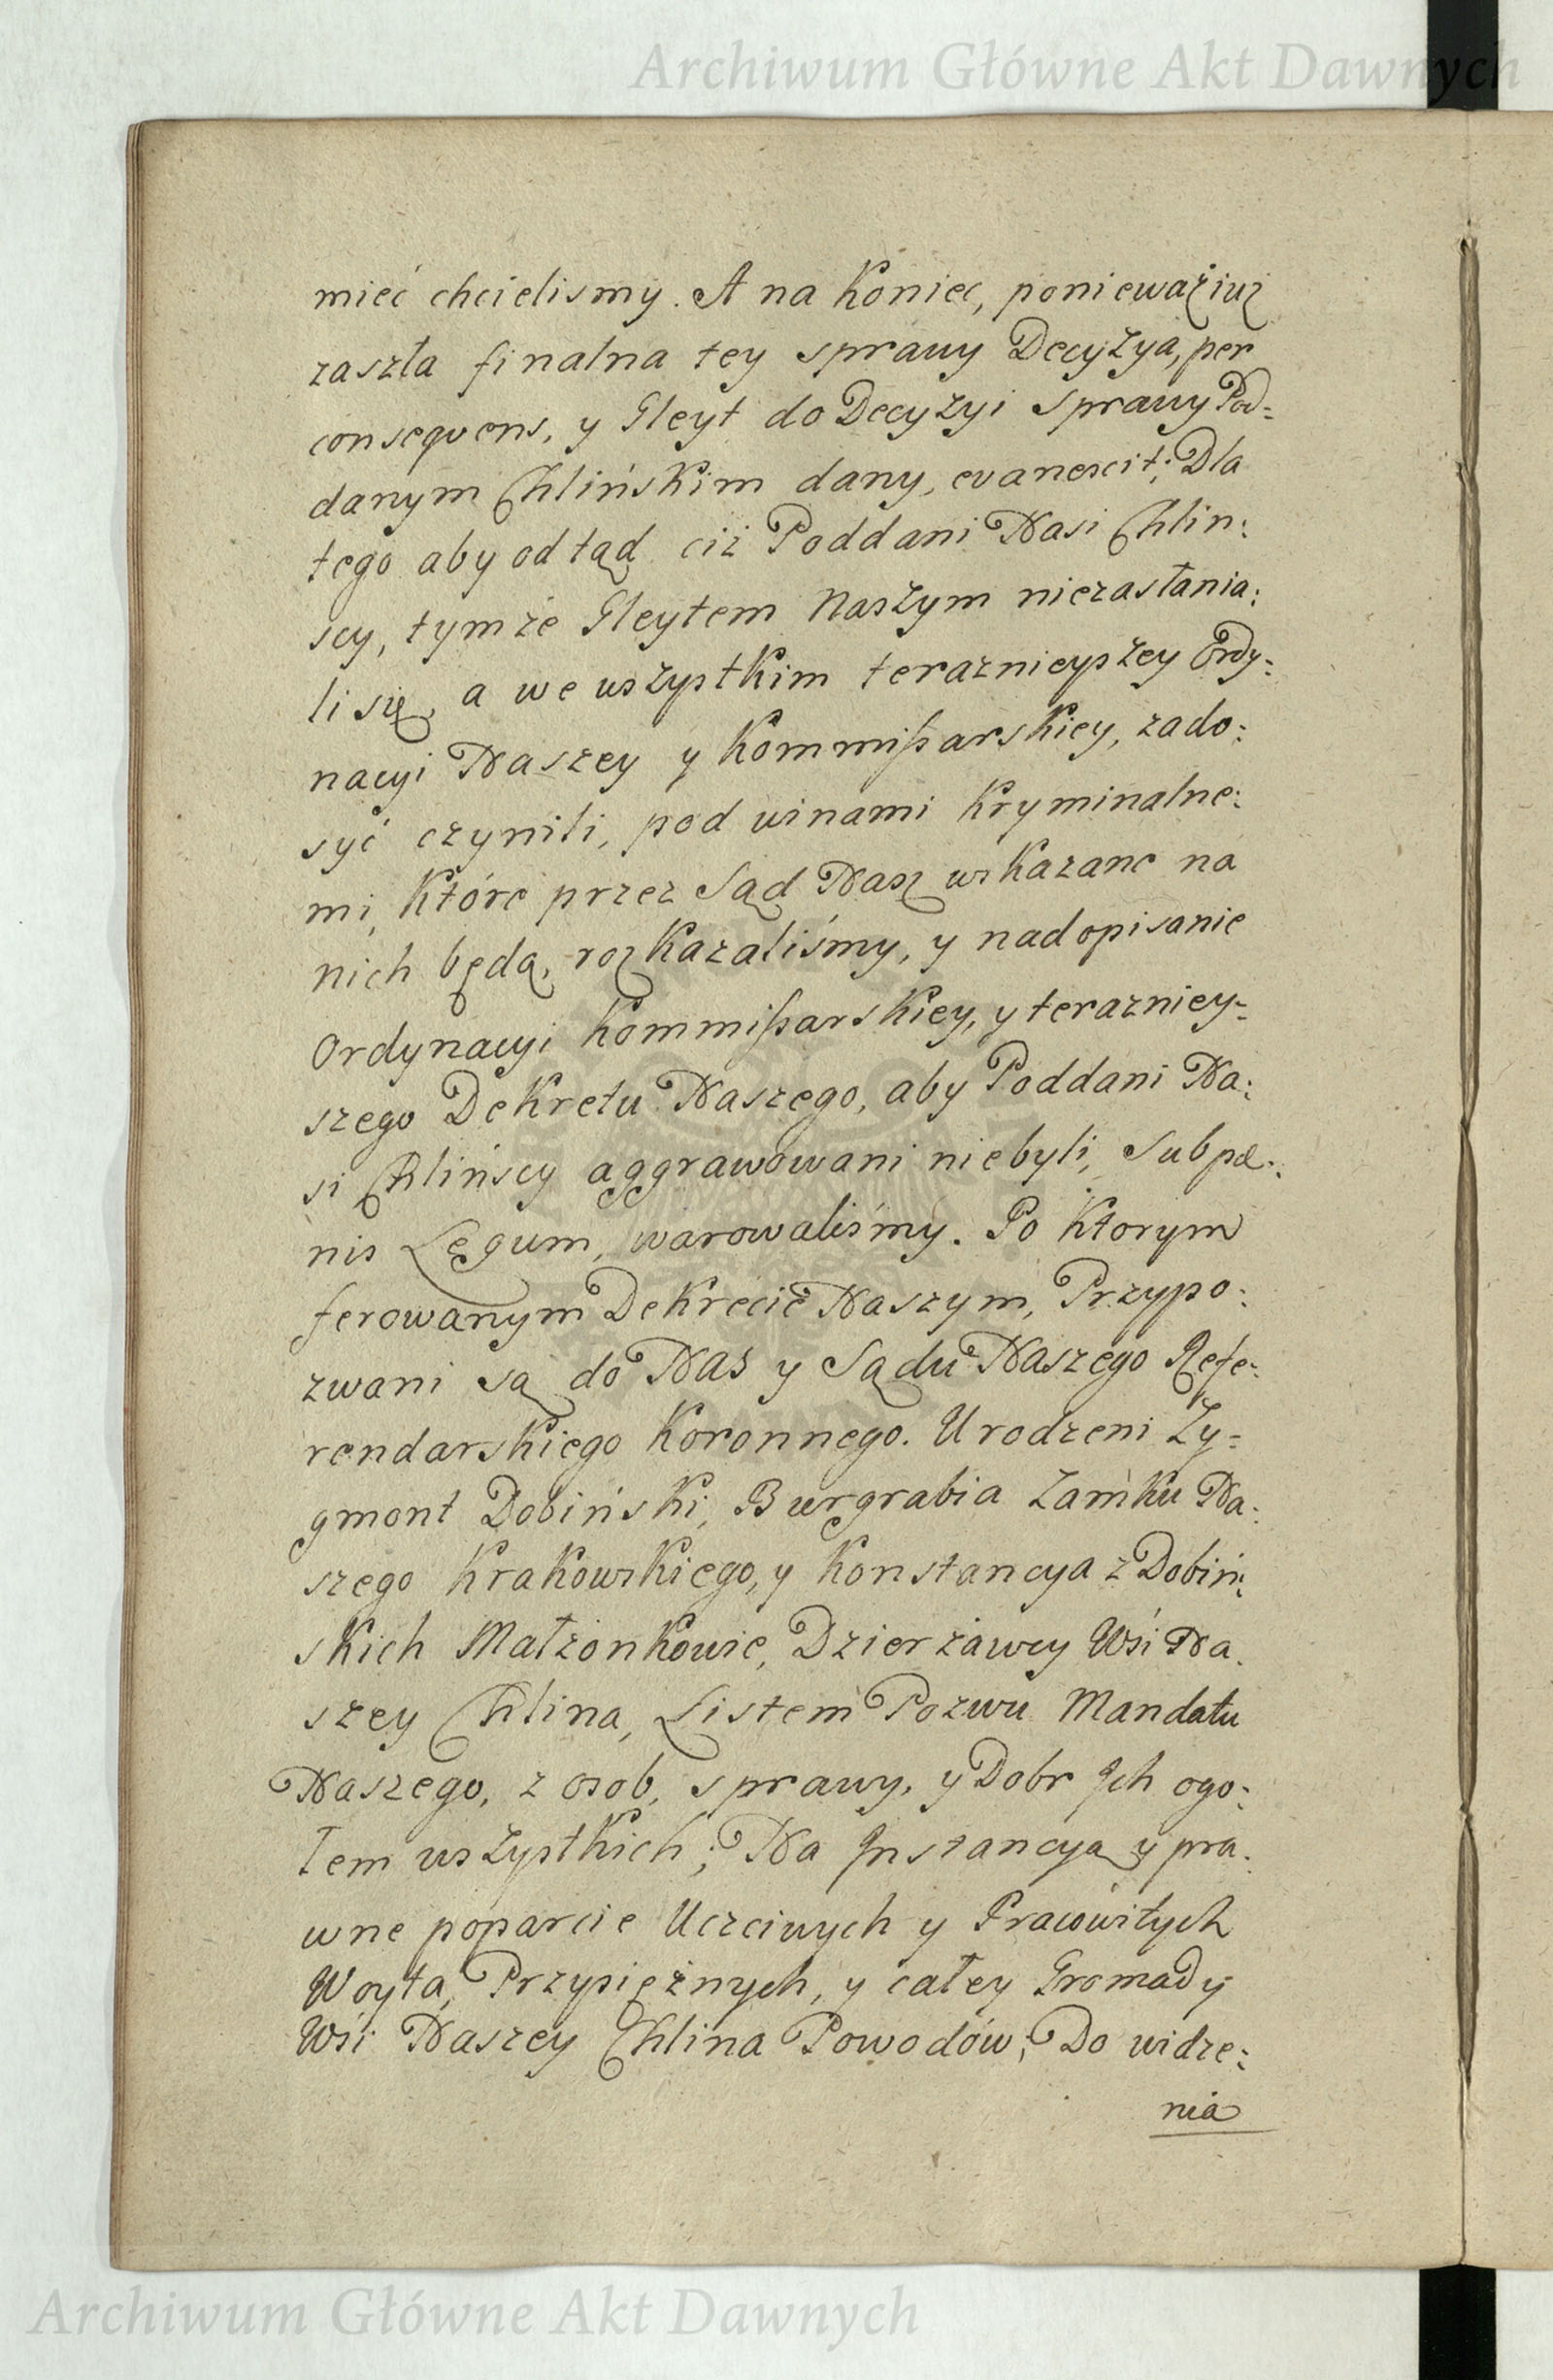 Archiwum Główne Akt Dawnych
mieć chcielismy. A na Koniec, ponieważ iuż
zaszła finalna tey sprawy Decyzya, per
consequens, y Gleyt do Decyzyi sprawy Pod=
danym Chlińskim dany, evanescit; Dla
tego aby odtąd ciż Poddani Nasi Chlin:
scy, tymże Gleytem Naszym niezasłania:
li się, a we wszystkim teraznieyszey Ordy=
nacyi Naszey y Kommißarskiey, zado:
syć czynili, pod winami Kryminalne:
mi, Które przez Sąd Nasz wskazane na
nich będą, rozkazaliśmy, y nad opisanie
Ordynacyi Kommißarskiey, y terazniey=
szego Dekretu Naszego, aby Poddani Na:
si Chlińscy aggrawowani niebyli, Sub pæ:
nis Legum, warowaliśmy. Po Ktorym
ferowanym Dekrecie Naszym, Przypo:
zwani są do Nas y Sądu Naszego Refe:
rendarskiego Koronnego. Urodzeni Zy=
gmont Dobiński, Burgrabia Zamku Na:
szego Krakowskiego, y Konstancya z Dobiń:
skich Małżonkowie, Dzierżawcy Wśi Na.
szey Chlina, Listem Pozwu Mandatu
Naszego, z osob, sprawy, y Dobr Ich ogo:
łem wszystkich; Na Instancyą y pra:
wne poparcie Uczciwych y Pracowitych
Woyta, Przysiężnych, y całey Gromady
Wśi Naszey Chlina Powodów; Do widze:
nia
Archiwum Główne Akt Dawnych